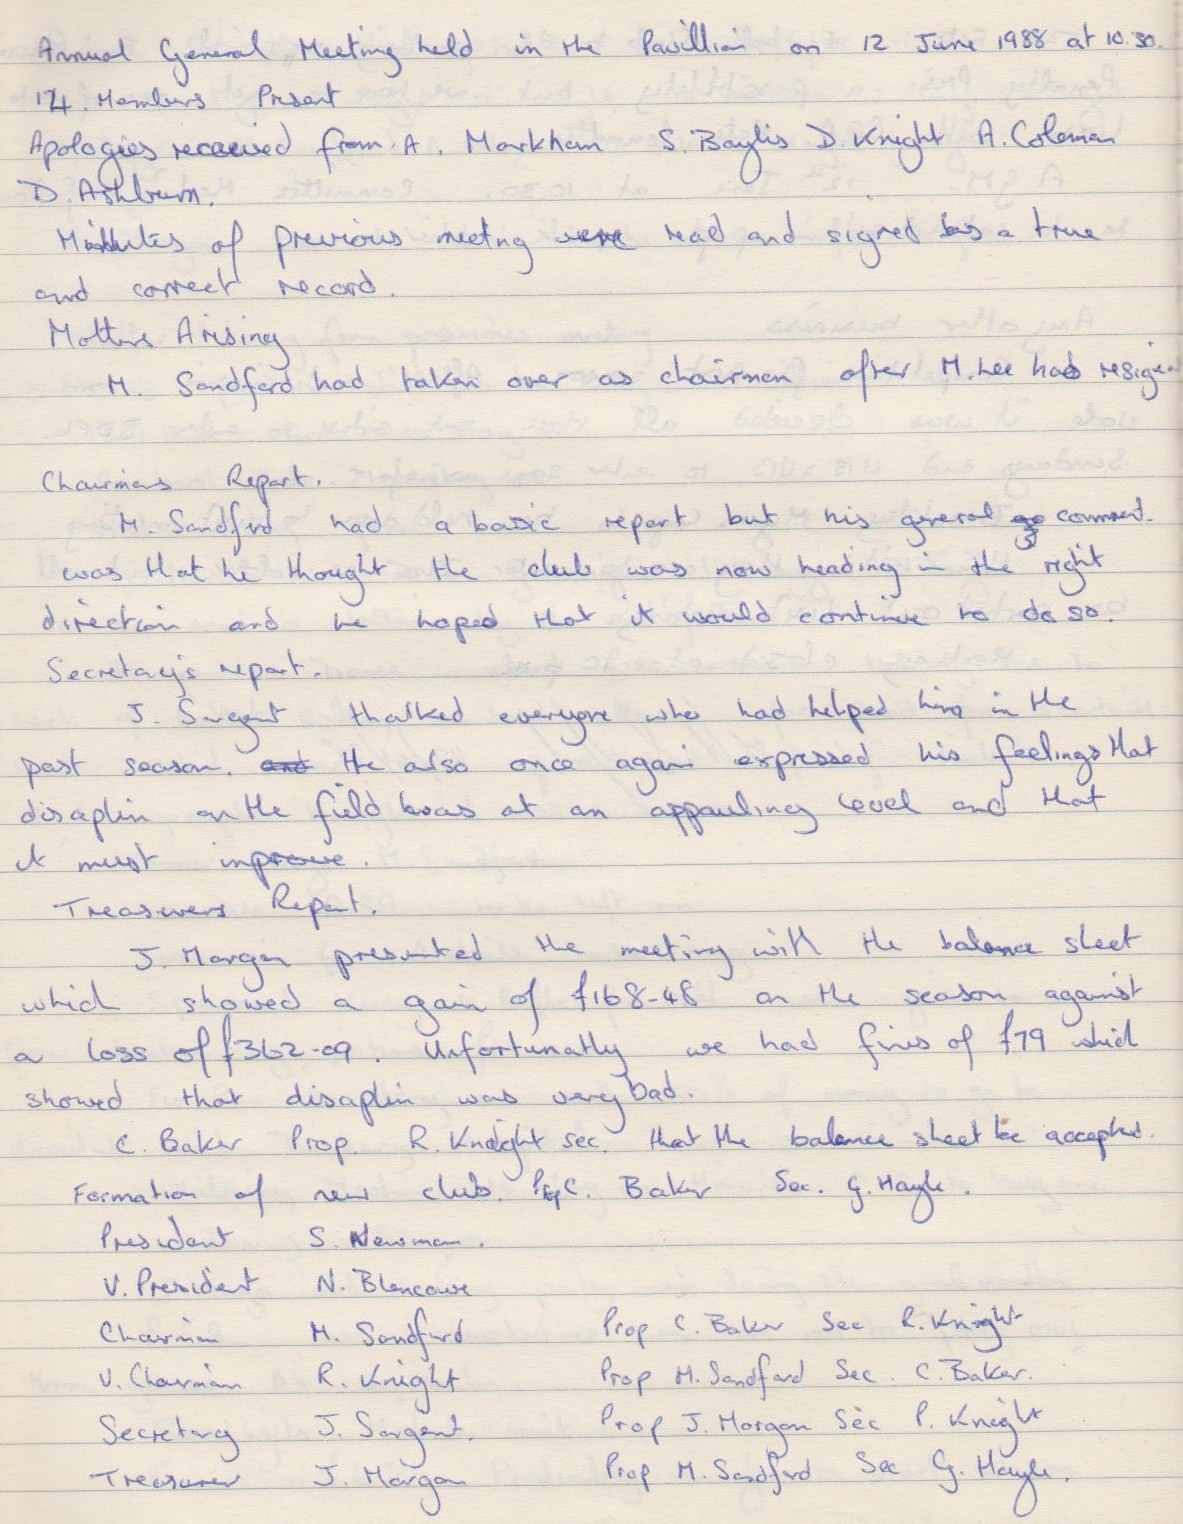 Annual General Meeting held in the Pavillian on 12 June 1988 at 10.30.
14. Members Present
Apologies received from A. Markham S. Baylis D. Knight A. Coleman
D. Ashburn.
Minutes of previous meeting were read and signed as a true
and correct record.
Matters Arising
M. Sandford had taken over as chairman after M. Lee had resigned
Chairmans Report.
M. Sandford had a basic report but his general comment.
was that he thought the club was now heading in the right
direction and he hoped that it would continue to do so.
Secretary's report.
J. Sargent thalked everyone who had helped him in the
past season. and He also once again expressed his feelings that
disaplin on the field was at an appauling level and that
it must improve.
Treasurers Report.
J. Morgan presented the meeting with the balance sheet
which showed a gain of £168-48 on the season against
a loss of £362-09. Unfortunatly we had fines of £79 which
showed that disaplin was very bad.
C. Baker Prop. R. Knight sec. that the balance sheet be accepted.
Formation of new club. Prop C. Baker Sec. G. Hayle.
President S. Newman.
V. President N. Blencowe
Chairman M. Sandford Prop C. Baker Sec R. Knight
V. Chairman R. Knight Prop M. Sandford Sec. C. Baker.
Secretary J. Sargent. Prop J. Morgan Sec P. Knight
Treasurer J. Morgan Prop M. Sandford Sec G. Hayle.